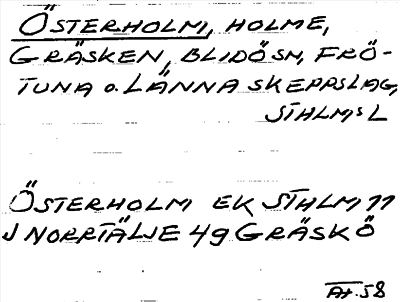 ÖSTERHOLM, HOLME,
GRÄSKEN, BLIDÖSN, FRÖ-
TUNA O. LÄNNA SKEPPSLAG,
STHLMS L
ÖSTERHOLM EK STHLM 11
J NORRTÄLJE 49 GRÄSKÖ
AH.58